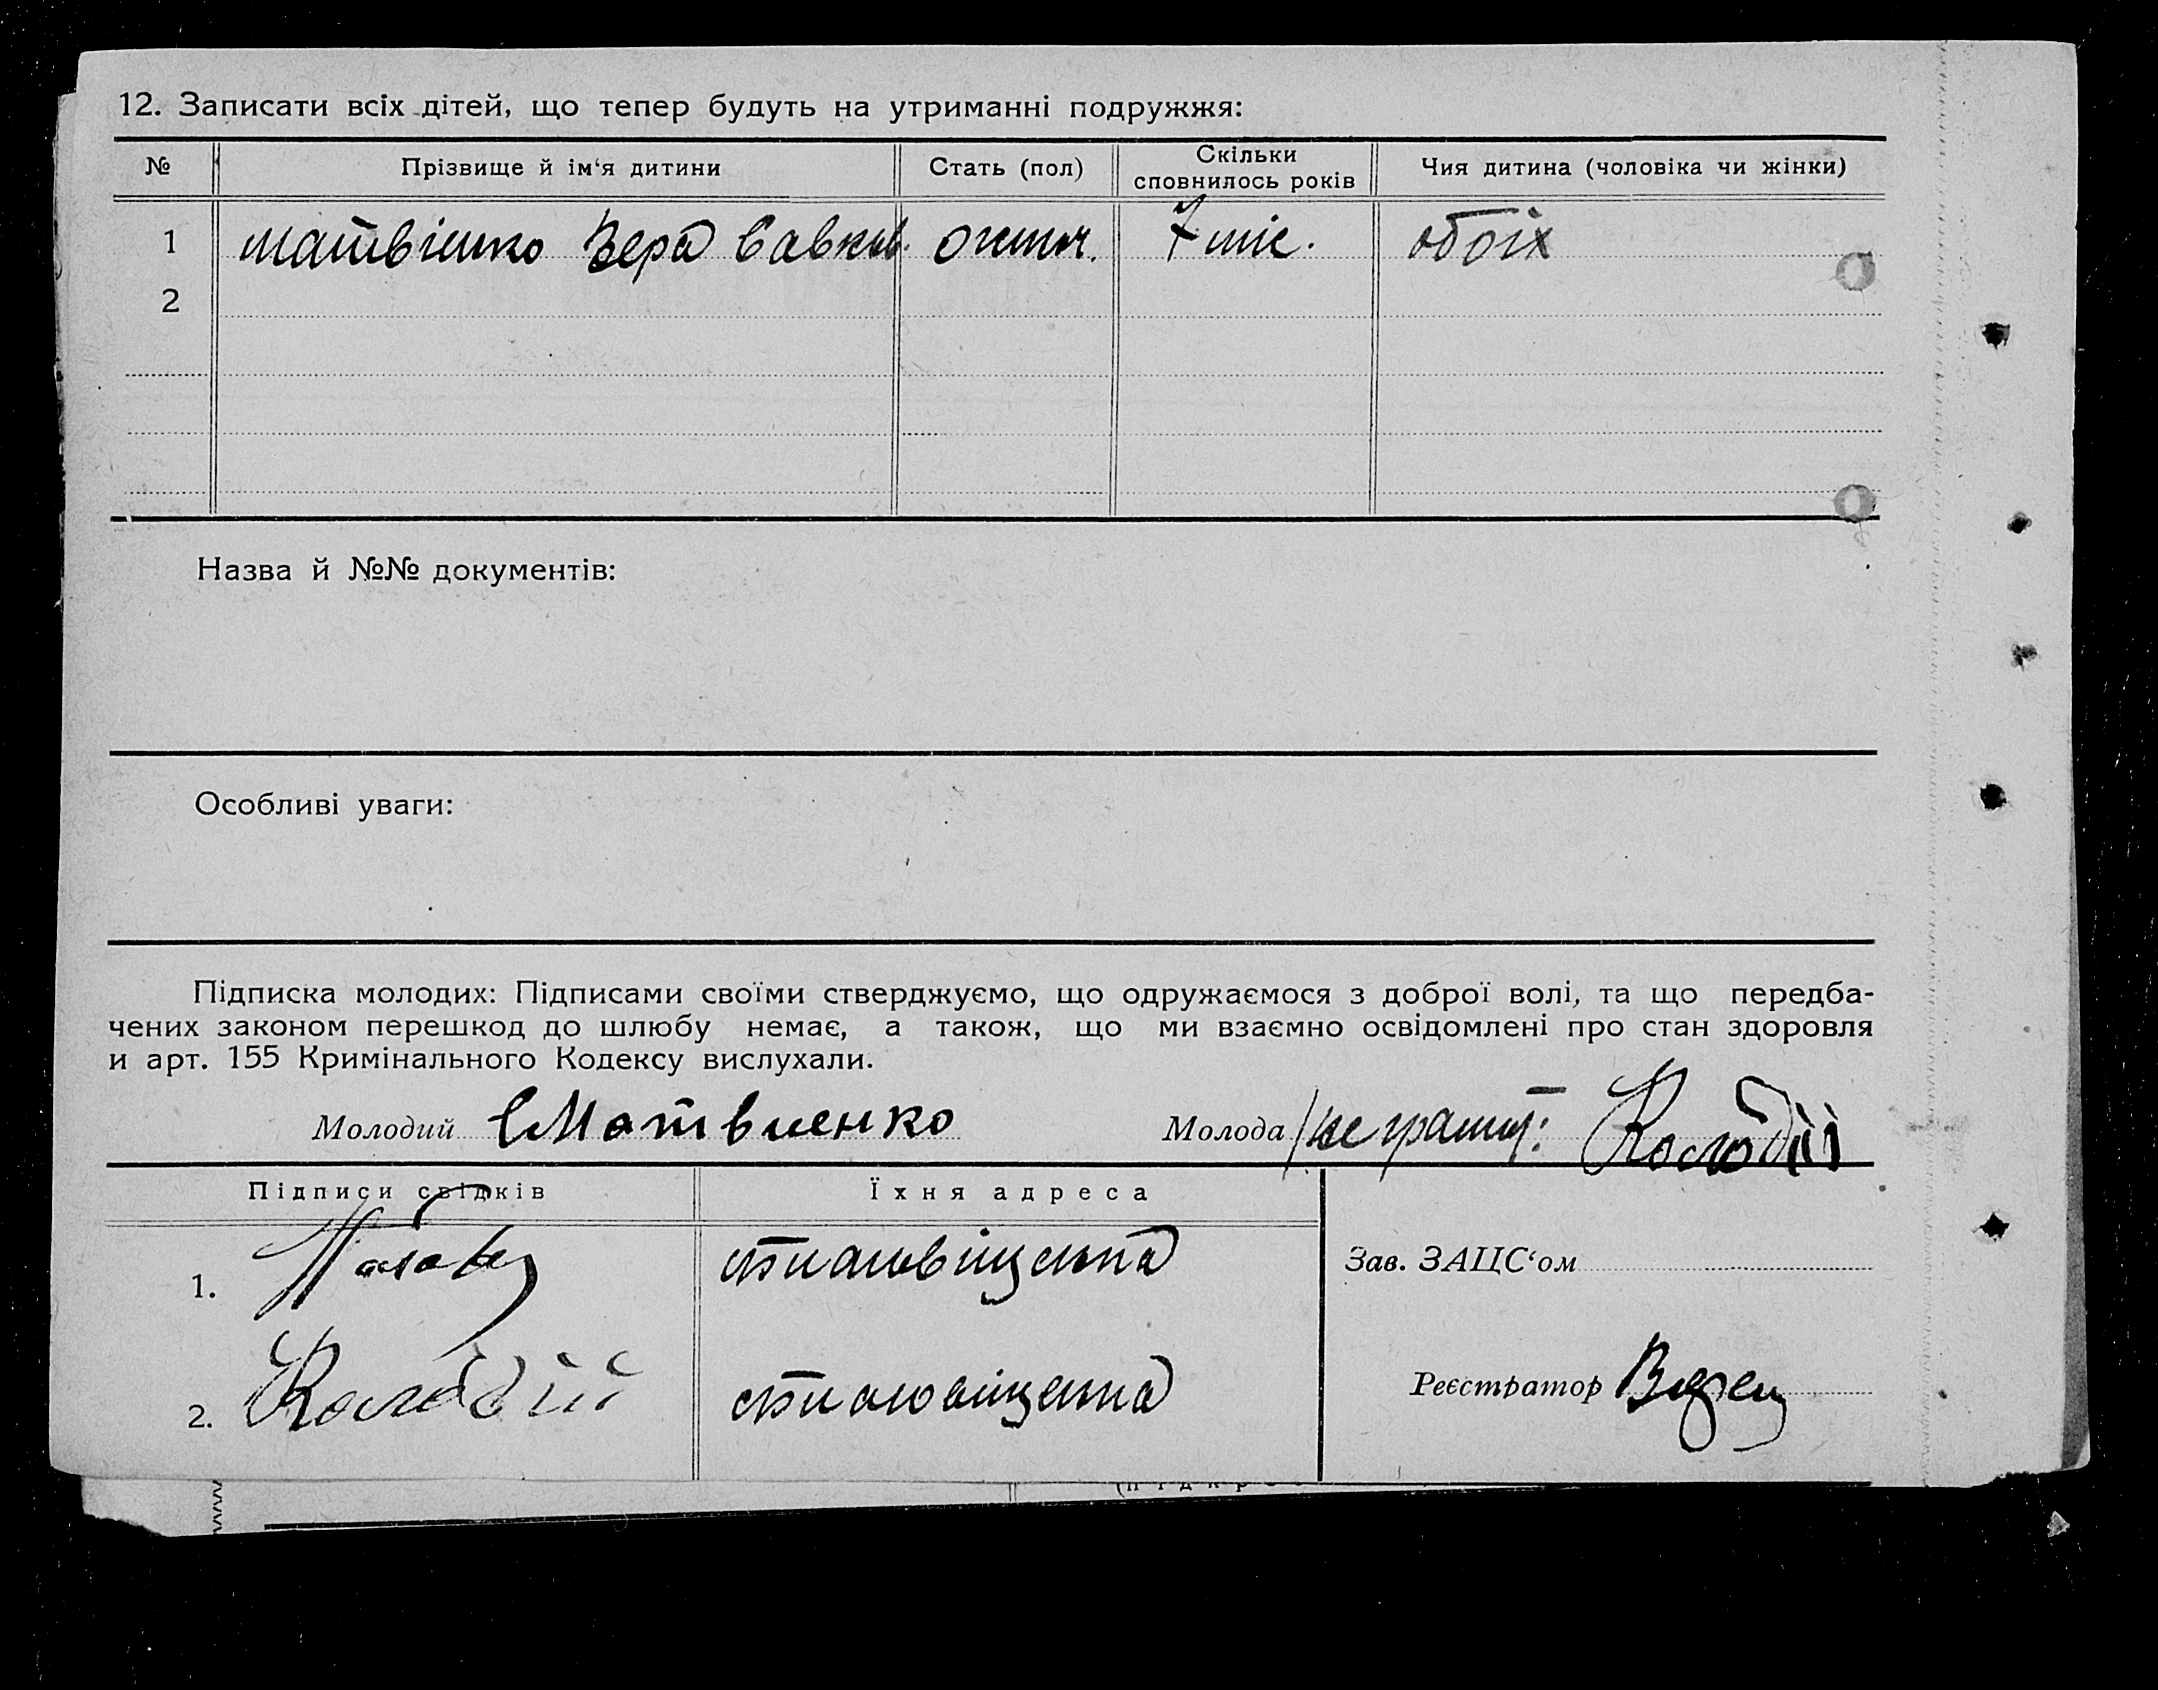 12. Записати всіх дітей, що тепер будуть на утриманні подружжя:
№ Прізвище й ім‘я дитини Стать (пол) Скільки сповнилось років Чия дитина (чоловіка чи жінки)
1 Матвієнко Вера Савков. 7 міс. обоїх
2
Назва й №№ документів:
Особливі уваги:
Підписка молодих: Підписами своїми стверджуємо, що одружаємося з доброї волі, та що передба-
чених законом перешкод до шлюбу немає, а також, що ми взаємно освідомлені про стан здоровля
и арт. 155 Кримінального Кодексу вислухали.
Молодий Матвиенко Молода /не грамот: Колодій
Підписи свідків Їхня адреса
1.
Зав. ЗАЦС‘ом
2. Колодій
Реєстратор
(підкрес